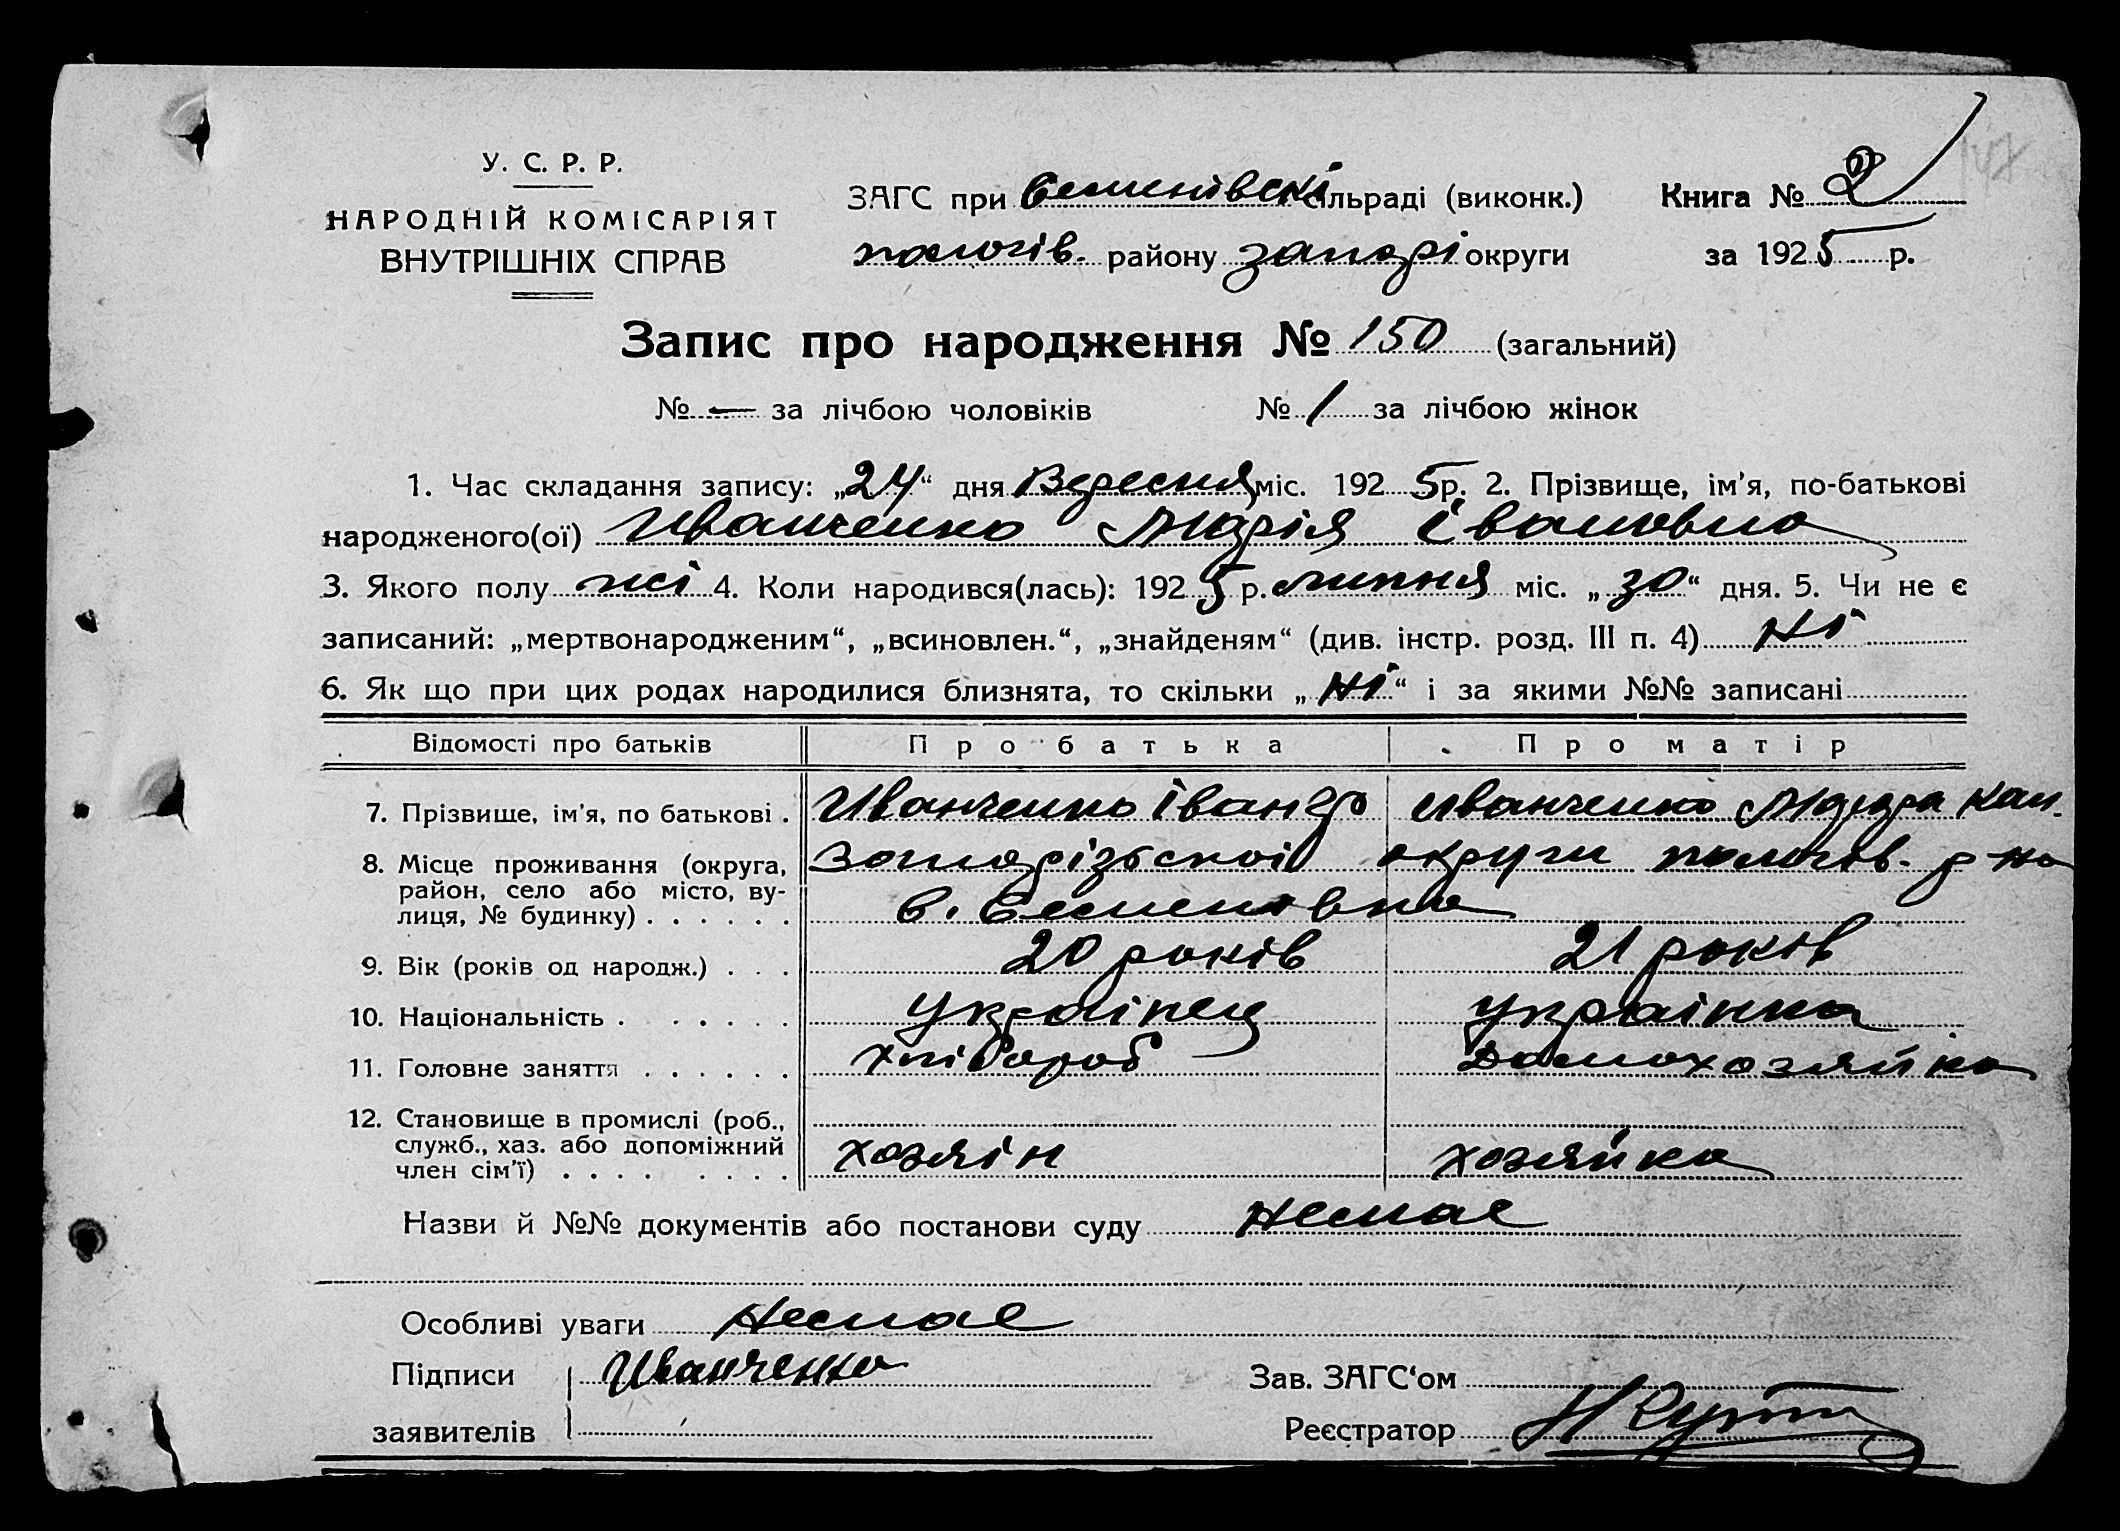 У. С. Р. Р.
НАРОДНІЙ КОМІСАРІЯТ
ВНУТРІШНІХ СПРАВ
ЗАГС при Семенівскі сільраді (виконк.)
пологів. району запорі округи
Книга № 2
за 1925 р.
147
Запис про народження № 150 (загальний)
№ — за лічбою чоловіків № 1 за лічбою жінок
1. Час складання запису: „24“ дня Вересня міс. 1925 р. 2. Прізвище, ім’я, по-батькові
народженого(ої) Иванченко Марія Івановна
3. Якого полу жі 4. Коли народився(лась): 1925 р. липня міс. „30“ дня. 5. Чи не є
записаний: „мертвонародженим“, „всиновлен.“, „знайденям“ (див. інстр. розд. III п. 4) Ні
6. Як що при цих родах народилися близнята, то скільки „Ні“ і за якими №№ записані
Відомості про батьків Про батька Про матір
7. Прізвище, ім’я, по батькові . Иванченко Іван Иванченко
8. Місце проживання (округа, Запорізьскоі округи пологів. р-на
район, село або місто, ву-
лиця, № будинку) . . . . . . с. Семеновка
9. Вік (років од народж.) . . . 20 років 21 років
10. Національність . . . . . . українец українка
11. Головне заняття . . . . . . хлібороб домохозяйка
12. Становище в промислі (роб.,
служб., хаз. або допоміжний хозяін хозяйка
член сім’ї) . . . . . . . .
Назви й №№ документів або постанови суду Немае
Особливі уваги Немае
Підписи Иванченко Зав. ЗАГС‘ом
заявителів Реєстратор